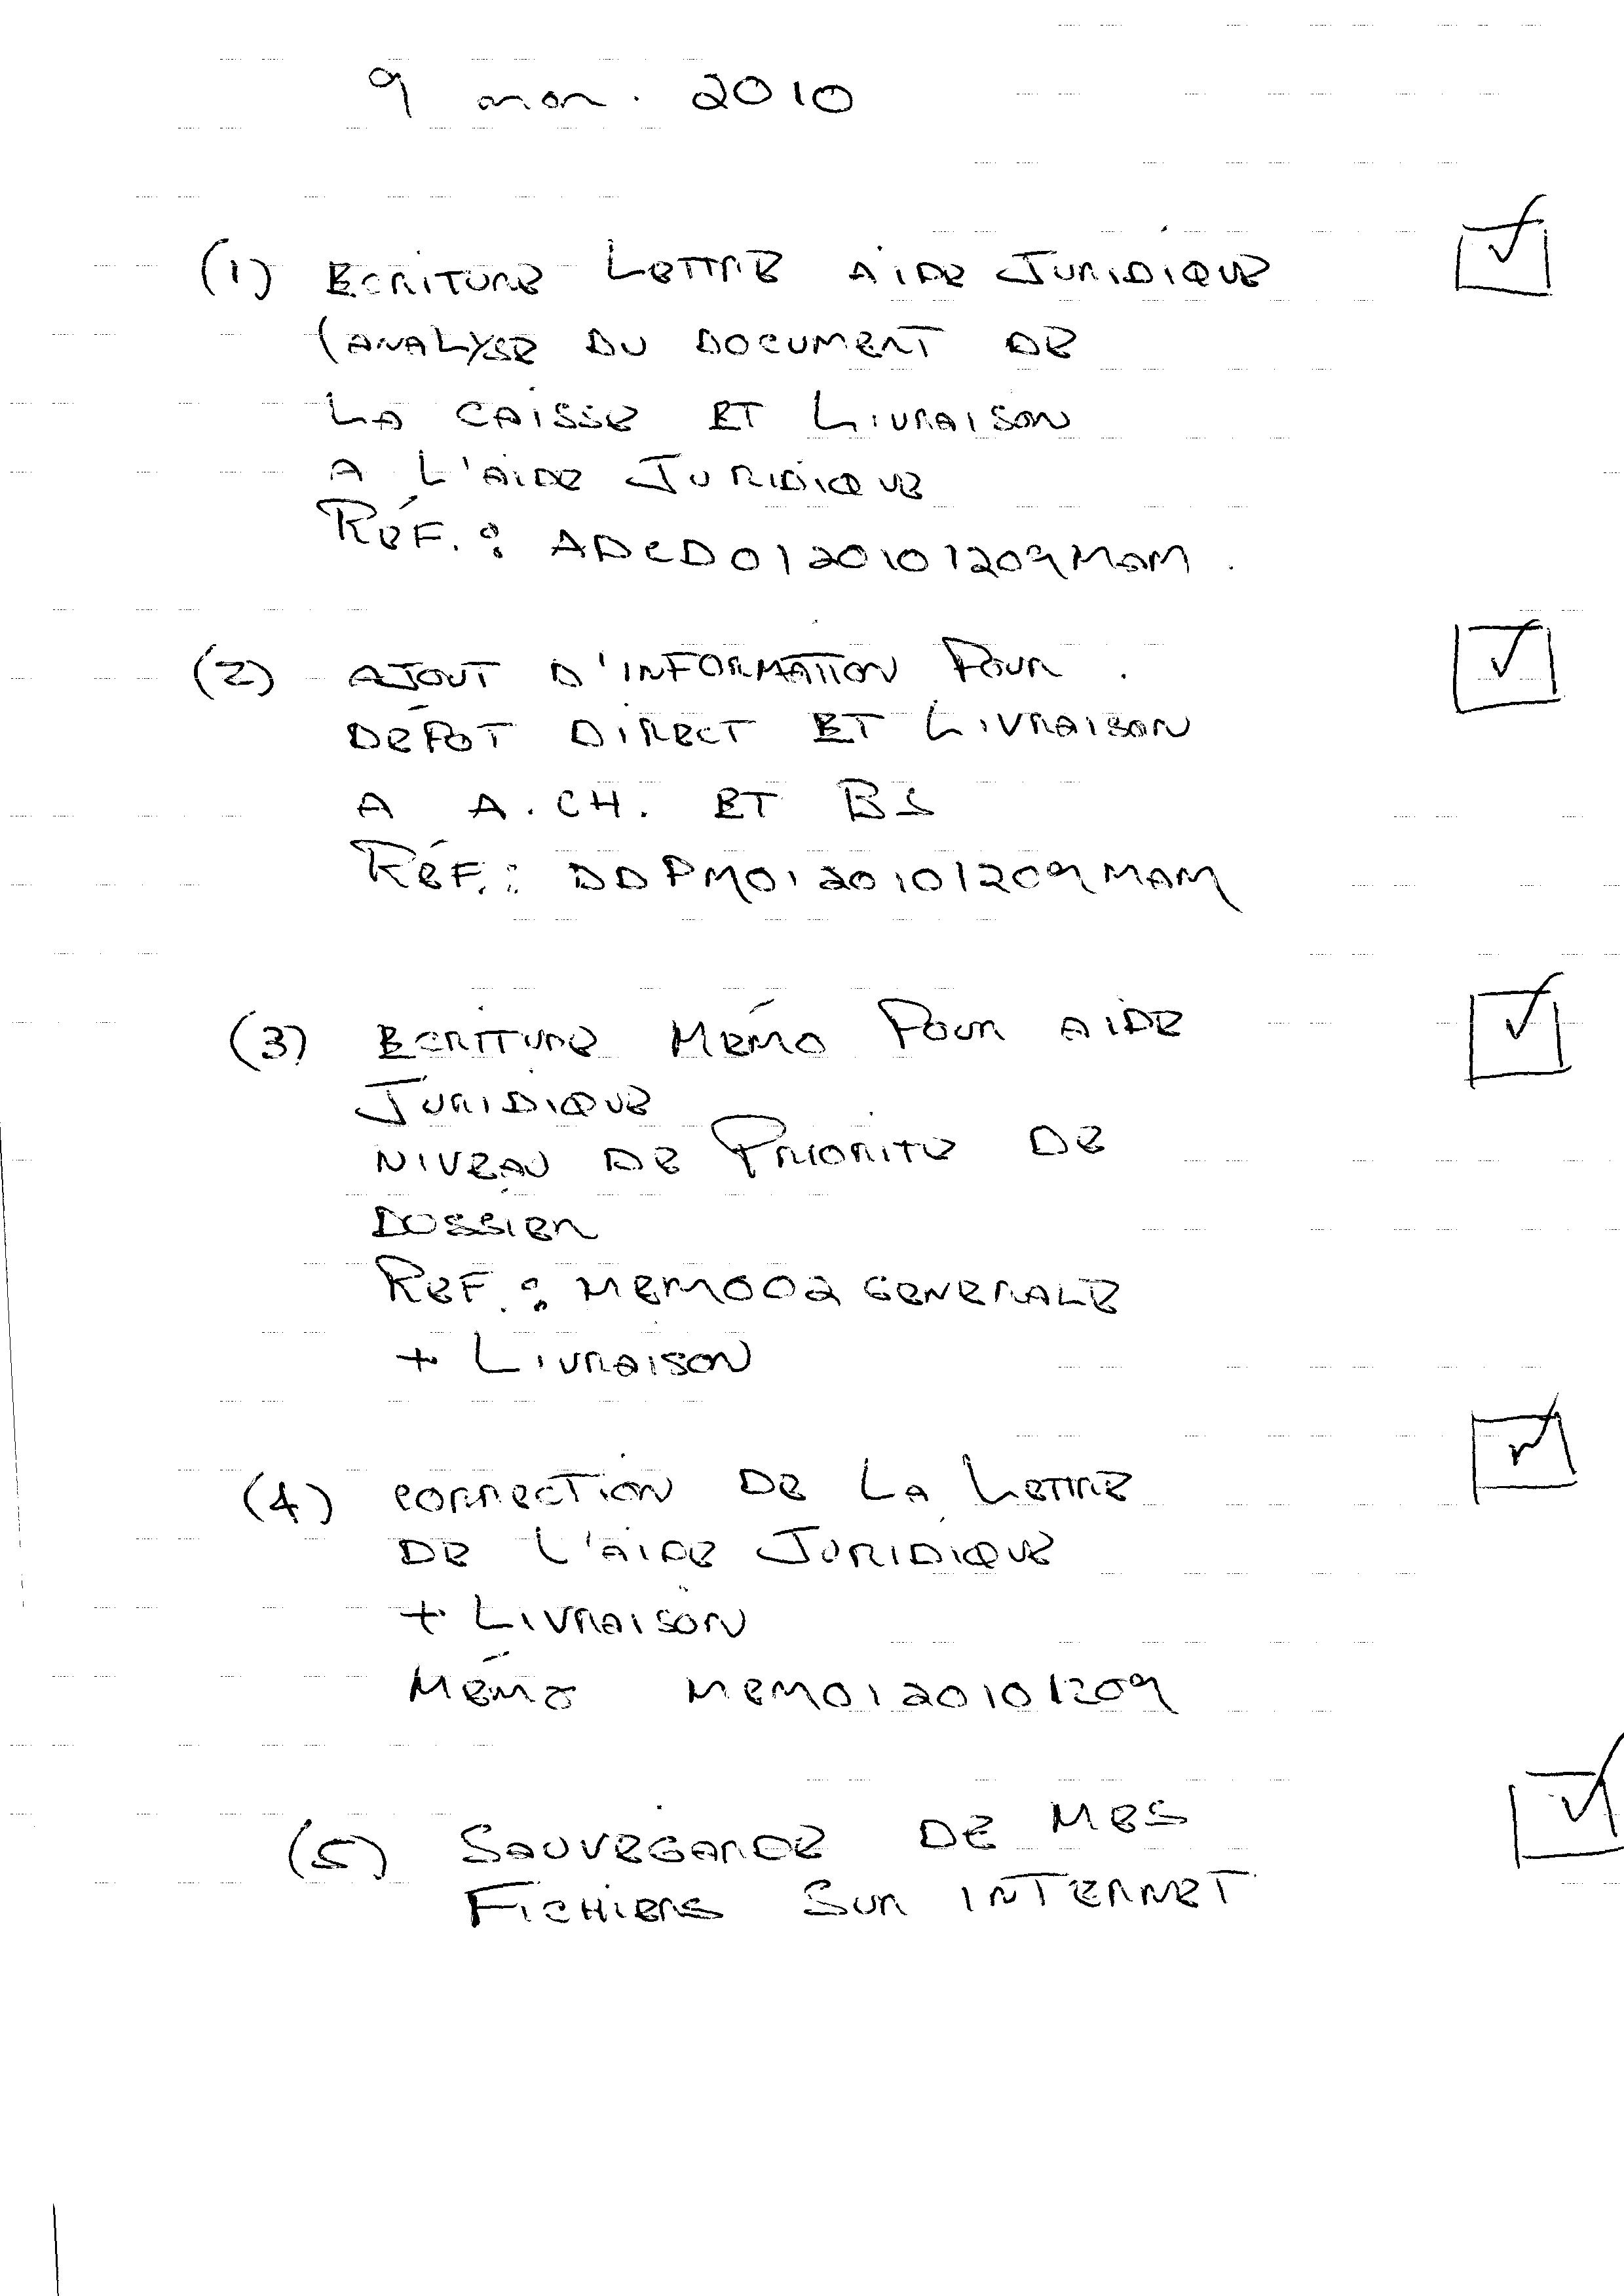 9 nov. 2010
(1) ECRITURE LETTRE AIDE JURIDIQUE
(ANALYSE DU DOCUMENT DE
LA CAISSE ET LIVRAISON
A L'AIDE JURIDIQUE
RÉF.: ADCD0120101209MAM.
(2) AJOUT D'INFORMATION POUR
DEPOT DIRECT ET LIVRAISON
A A.CH. ET BS
RÉF.: DDPM0120101209MAM
(3) ECRITURE MÉMO POUR AIDE
JURIDIQUE
NIVEAU DE PRIORITE DE
DOSSIER
REF.: MEM002GENERALE
+ LIVRAISON
(4) CORRECTION DE LA LETTRE
DE L'AIDE JURIDIQUE
+ LIVRAISON
MÉMO MEM0120101209
(5) SAUVEGARDE DE MES
FICHIERS SUR INTERNET